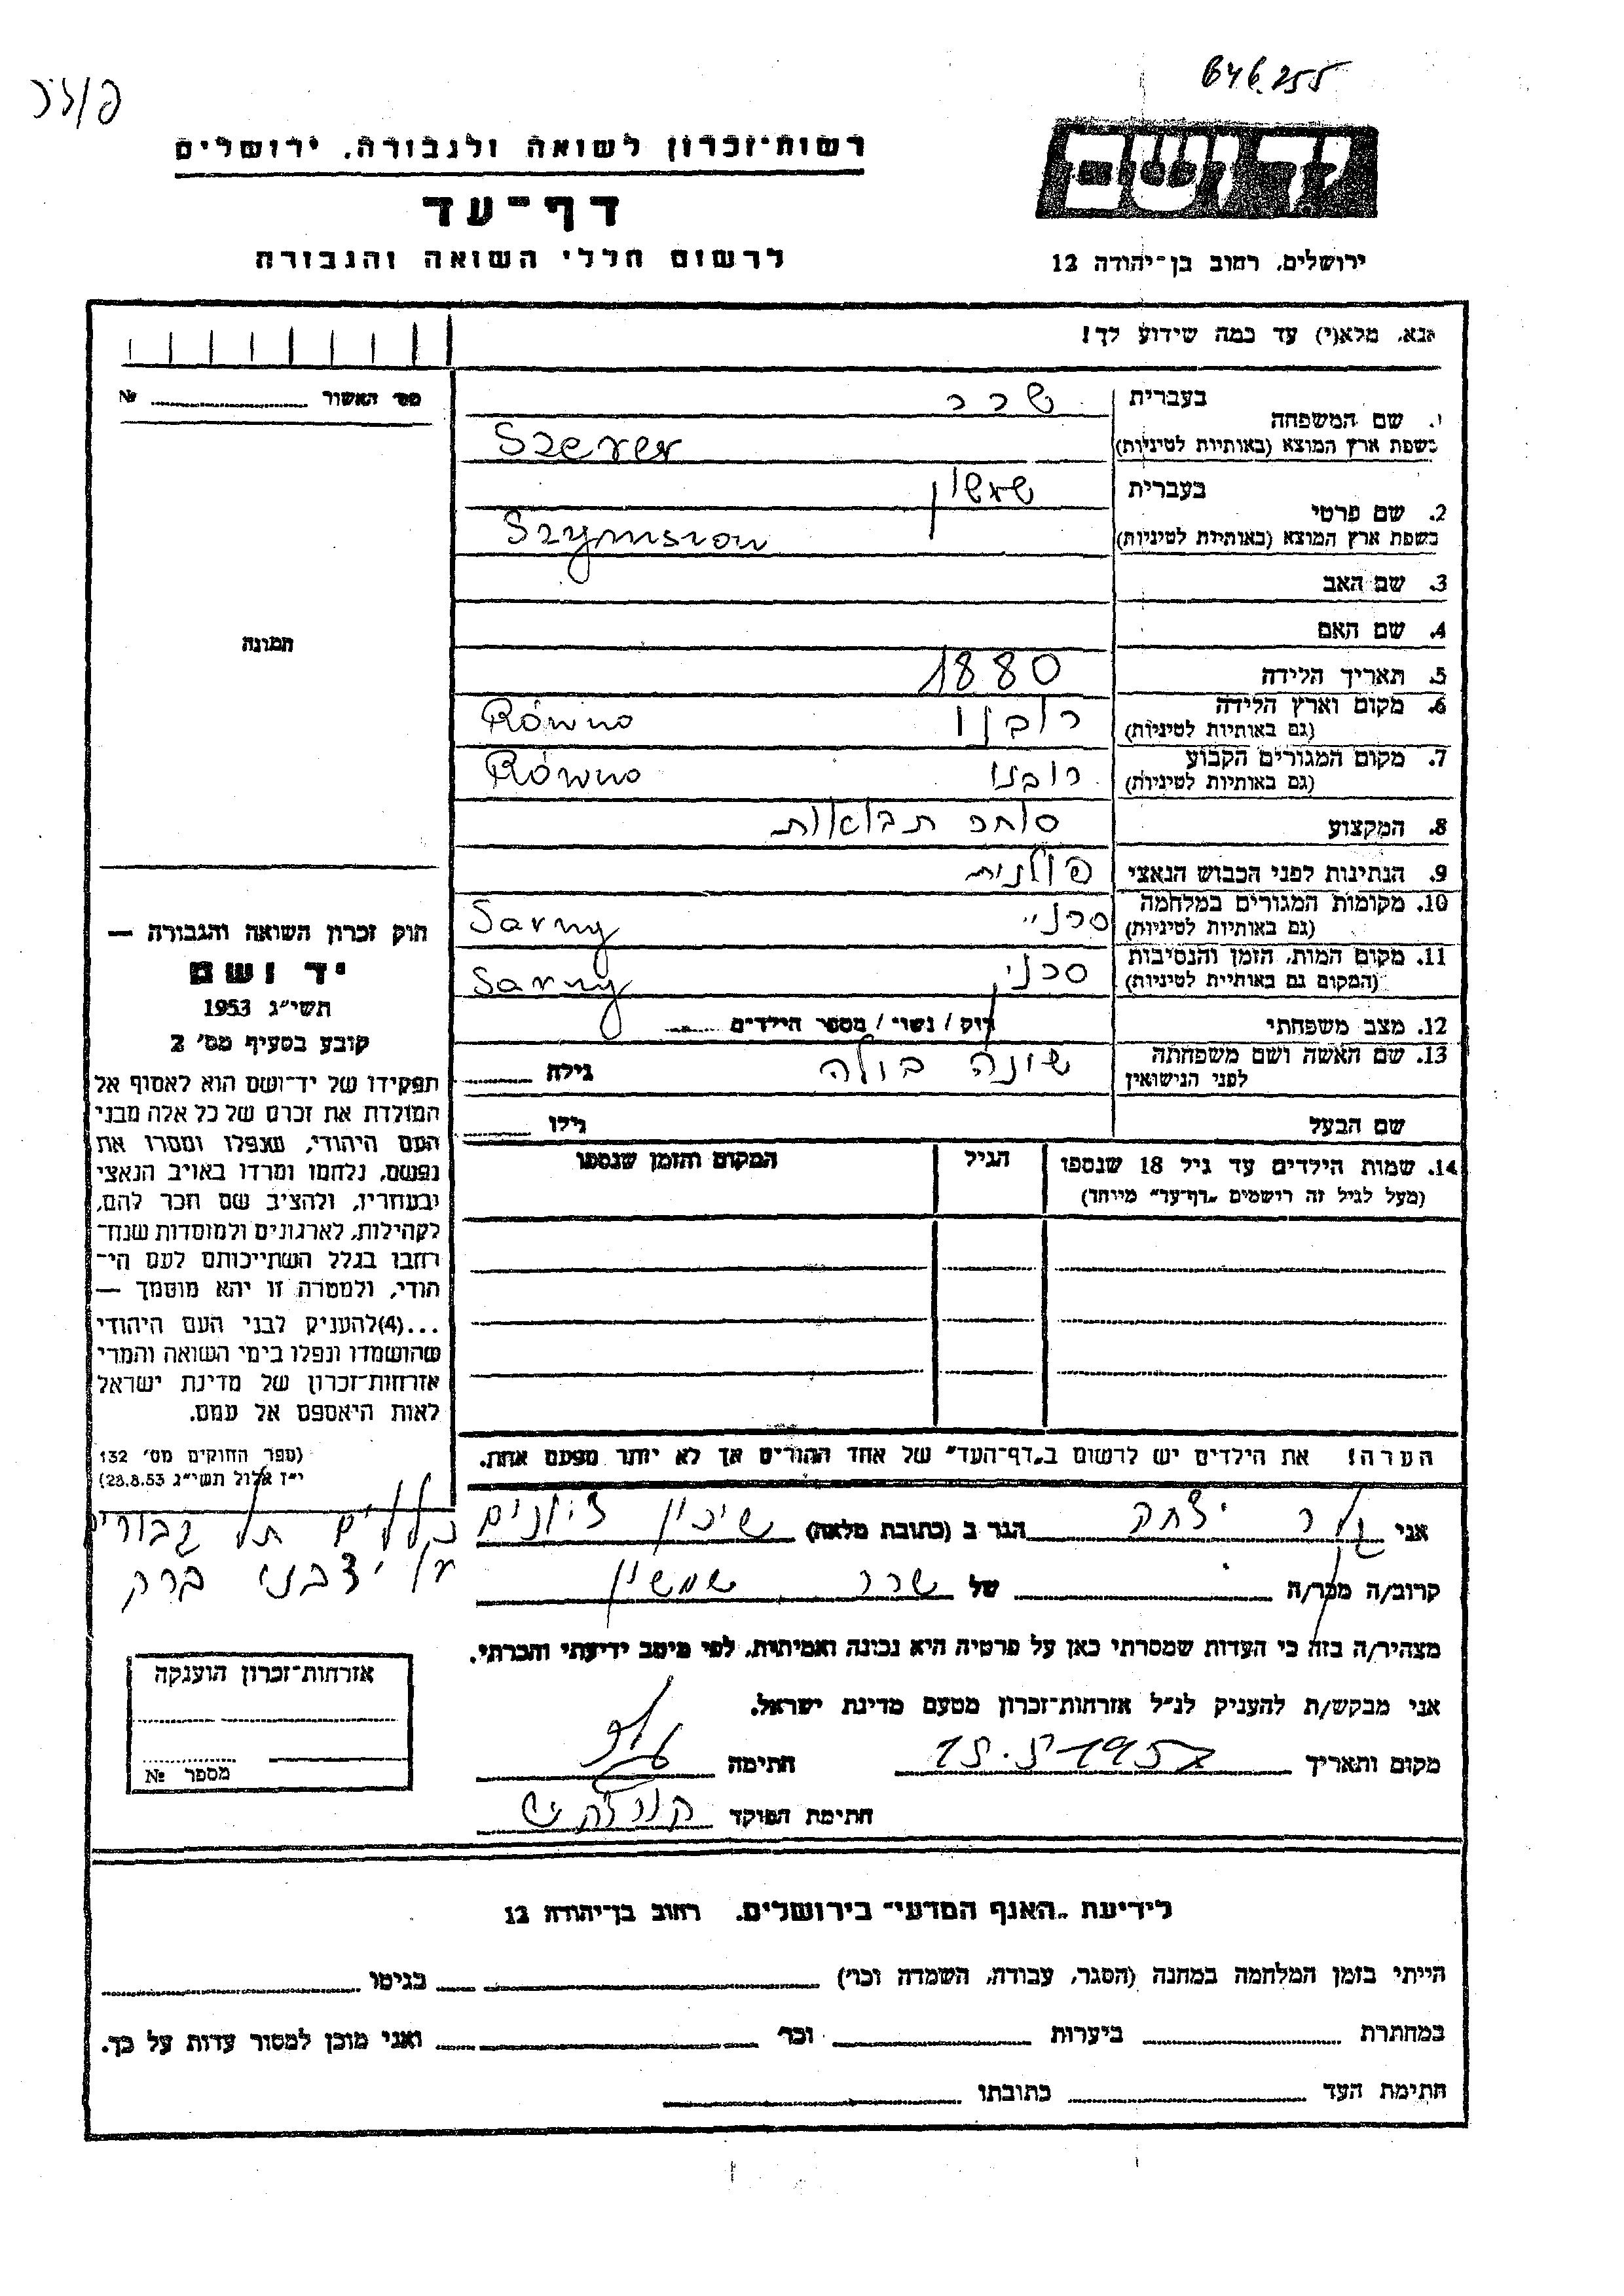 646255
פולין
רשות־זכרון לשואה ולגבורה, ירושלים
דף־עד
לרשום חללי השואה והגבורה
יד ושם
ירושלים, רחוב בן־יהודה 12
אנא, מלא(י) עד כמה שידוע לך!
מס' האשור № 
1. שם המשפחה
בעברית שרר
בשפת ארץ המוצא (באותיות לטיניות) Szerer
2. שם פרטי
בעברית שמשון
בשפת ארץ המוצא (באותיות לטיניות) Szymszon
3. שם האב
4. שם האם
5. תאריך הלידה 1880
6. מקום וארץ הלידה (גם באותיות לטיניות) רובנו Równo
7. מקום המגורים הקבוע (גם באותיות לטיניות) רובנו Równo
8. המקצוע סוחר תבואות
9. הנתינות לפני הכבוש הנאצי פולנית
10. מקומות המגורים במלחמה (גם באותיות לטיניות) סרני Sarny
11. מקום המות, הזמן והנסיבות (המקום גם באותיות לטיניות) סרני Sarny
12. מצב משפחתי רוק / נשוי / מספר הילדים
13. שם האשה ושם משפחתה לפני הנישואין גילה
שם הבעל גילו
14. שמות הילדים עד גיל 18 שנספו
(מעל לגיל זה רושמים „דף־עד” מיוחד)
הגיל
המקום והזמן שנספו
תמונה
חוק זכרון השואה והגבורה —
יד ושם
תשי"ג 1953
קובע בסעיף מס' 2
תפקידו של יד־ושם הוא לאסוף אל
המולדת את זכרם של כל אלה מבני
העם היהודי, שנפלו ומסרו את
נפשם, נלחמו ומרדו באויב הנאצי
ובעוזריו, ולהציב שם וזכר להם,
לקהילות, לארגונים ולמוסדות שנח־
רבו בגלל השתייכותם לעם הי־
הודי, ולמטרה זו יהא מוסמך —
...(4)להעניק לבני העם היהודי
שהושמדו ונפלו בימי השואה והמרי
אזרחות־זכרון של מדינת ישראל
לאות היאספם אל עמם.
(ספר החוקים מס' 132
י"ז אלול תשי"ג 28.8.53)
הערה! את הילדים יש לרשום ב„דף־העד” של אחד ההורים אך לא יותר מפעם אחת.
אני יצחק הגר ב (כתובת מלאה) שיכון ציונים
כלליים תל גבורים
ע"י בני ברק
קרוב/ה מכר/ה של שרר שמשון
מצהיר/ה בזה כי העדות שמסרתי כאן על פרטיה היא נכונה ואמיתית, לפי מיטב ידיעתי והכרתי.
אני מבקש/ת להעניק לנ"ל אזרחות־זכרון מטעם מדינת ישראל.
מקום ותאריך 15.5.1957 חתימה
חתימת הפוקד
אזרחות־זכרון הוענקה
מספר №
לידיעת „האגף המדעי” בירושלים, רחוב בן־יהודה 12
הייתי בזמן המלחמה במחנה (הסגר, עבודה, השמדה וכו') בגיטו
במחתרת ביערות וכו' ואני מוכן למסור עדות על כך.
חתימת העד כתובתו